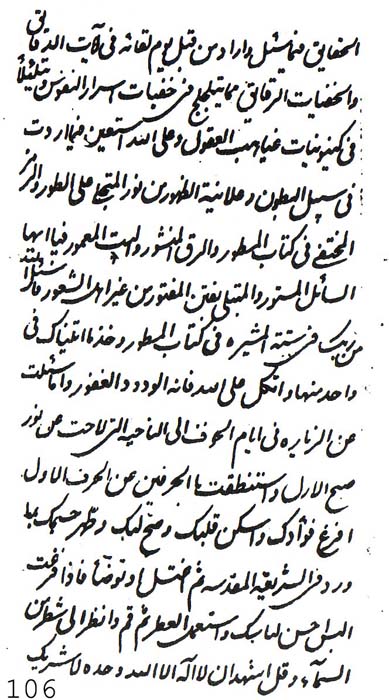 الحقایق فیما یسئل واراد من قبل یوم لقائه فی الآیات الدقائق
والخفیات الرقایق مما یتلجلج فی خفیات اسرار النفوس ویتلئلأ
فی کینونیات غیاهب العقول وعلی الله استعین فیما اردت
فی سبیل البطون وعلانیة الظهور من نور المتجلی علی الطور والرمز
المختفی فی کتاب المسطور والرق المنشور والبیت المعمور فیا ایها
السائل المستور والمبتلی بفتن المفتورین غیر اهل الشعور فاسئل الله
من ربک فی ستته المشیره فی کتاب المسطور وخذ ما اتیناک فی
واحد منها واتکل علی الله فانه الودود الغفور واما سئلت
عن الزیاره فی ایام الحرف الی الناحیه التی لاحت عن نور
صبح الازل واستنطقت بالحرفین عن الحرف الاول
افرغ فوأدک واسکن قلبک وصحّ لبک وطهر جسمک بما
ورد فی الشریعه المقدسه ثم اغتسل او توضأ فاذا فرغت
البس احسن لباسک واستعمل العطر ثم قم وانظر الی شطر من
السمآء وقل اشهد ان لا اله الا الله وحده لا شریک
106